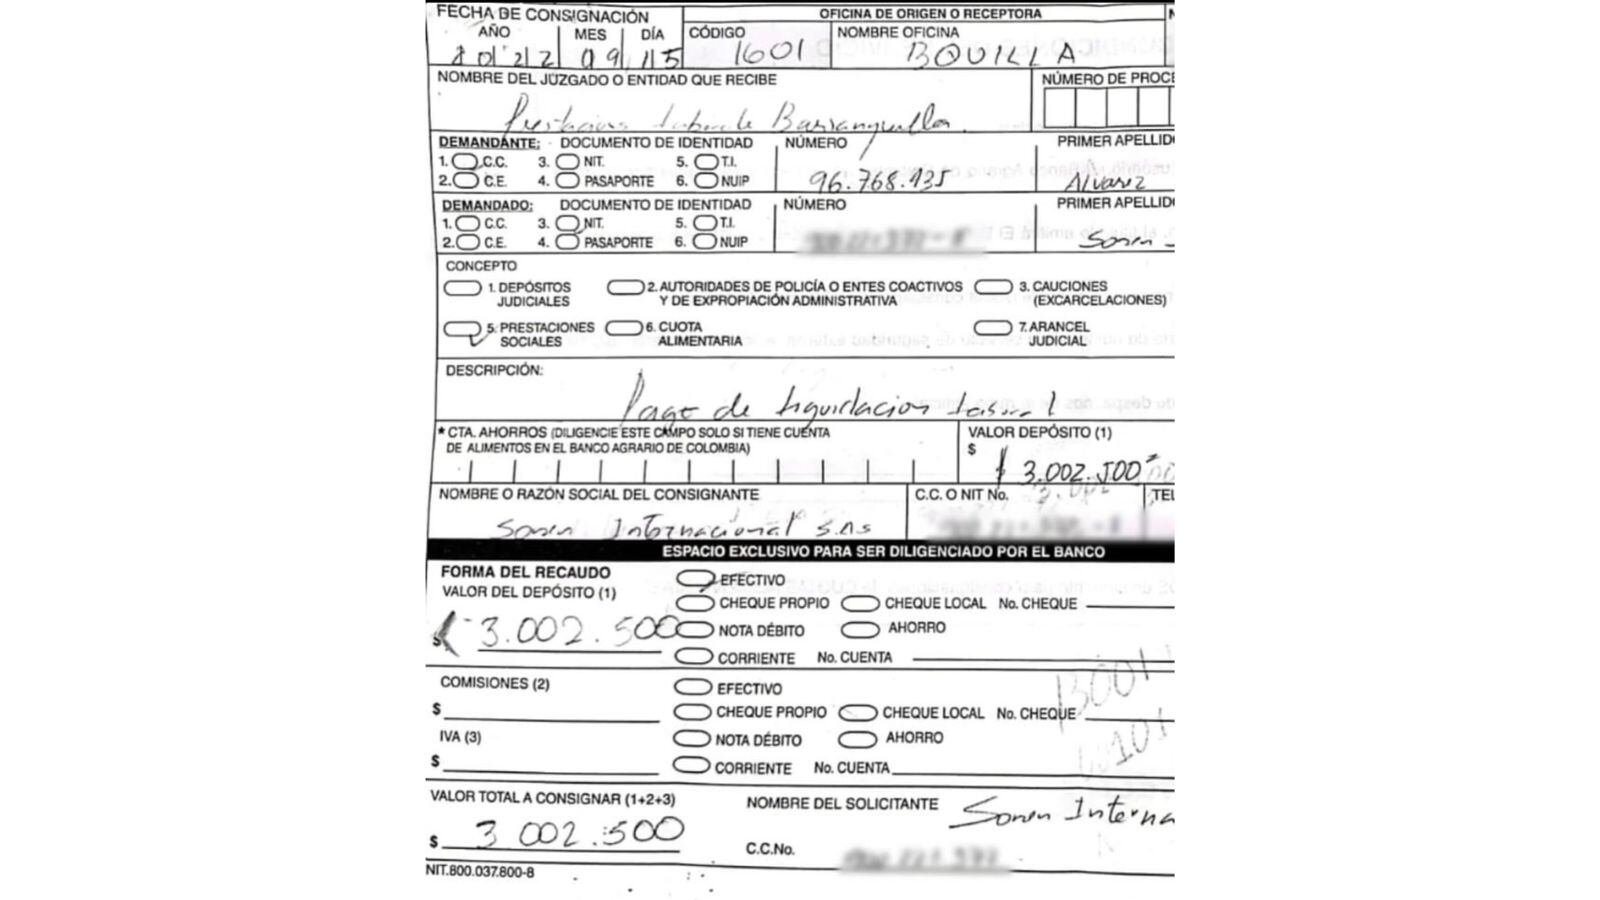 FECHA DE CONSIGNACIÓN
OFICINA DE ORIGEN O RECEPTORA
AÑO MES DÍA CÓDIGO NOMBRE OFICINA
2022 09 15 1601 BQUILLA
NOMBRE DEL JUZGADO O ENTIDAD QUE RECIBE NÚMERO DE PROCE
Barranquilla
DEMANDANTE: DOCUMENTO DE IDENTIDAD NÚMERO PRIMER APELLID
1. C.C. 3. NIT. 5. T.I.
2. C.E. 4. PASAPORTE 6. NUIP 96.768.135 Alvarez
DEMANDADO: DOCUMENTO DE IDENTIDAD NÚMERO PRIMER APELLID
1. C.C. 3. NIT. 5. T.I.
2. C.E. 4. PASAPORTE 6. NUIP
CONCEPTO
1. DEPÓSITOS JUDICIALES
2. AUTORIDADES DE POLICÍA O ENTES COACTIVOS Y DE EXPROPIACIÓN ADMINISTRATIVA
3. CAUCIONES (EXCARCELACIONES)
5. PRESTACIONES SOCIALES
6. CUOTA ALIMENTARIA
7. ARANCEL JUDICIAL
DESCRIPCIÓN:
Pago de liquidacion
* CTA. AHORROS (DILIGENCIE ESTE CAMPO SOLO SI TIENE CUENTA
DE ALIMENTOS EN EL BANCO AGRARIO DE COLOMBIA)
VALOR DEPÓSITO (1)
$ $ 3.002.500
NOMBRE O RAZÓN SOCIAL DEL CONSIGNANTE C.C. O NIT No. TEL
Internacional S.A.S
ESPACIO EXCLUSIVO PARA SER DILIGENCIADO POR EL BANCO
FORMA DEL RECAUDO
VALOR DEL DEPÓSITO (1)
$ 3.002.500
EFECTIVO
CHEQUE PROPIO CHEQUE LOCAL No. CHEQUE
NOTA DÉBITO AHORRO
CORRIENTE No. CUENTA
COMISIONES (2)
$
EFECTIVO
CHEQUE PROPIO CHEQUE LOCAL No. CHEQUE
IVA (3)
$
NOTA DÉBITO AHORRO
CORRIENTE No. CUENTA
VALOR TOTAL A CONSIGNAR (1+2+3)
$ 3.002.500
NOMBRE DEL SOLICITANTE Interna
C.C.No.
NIT.800.037.800-8